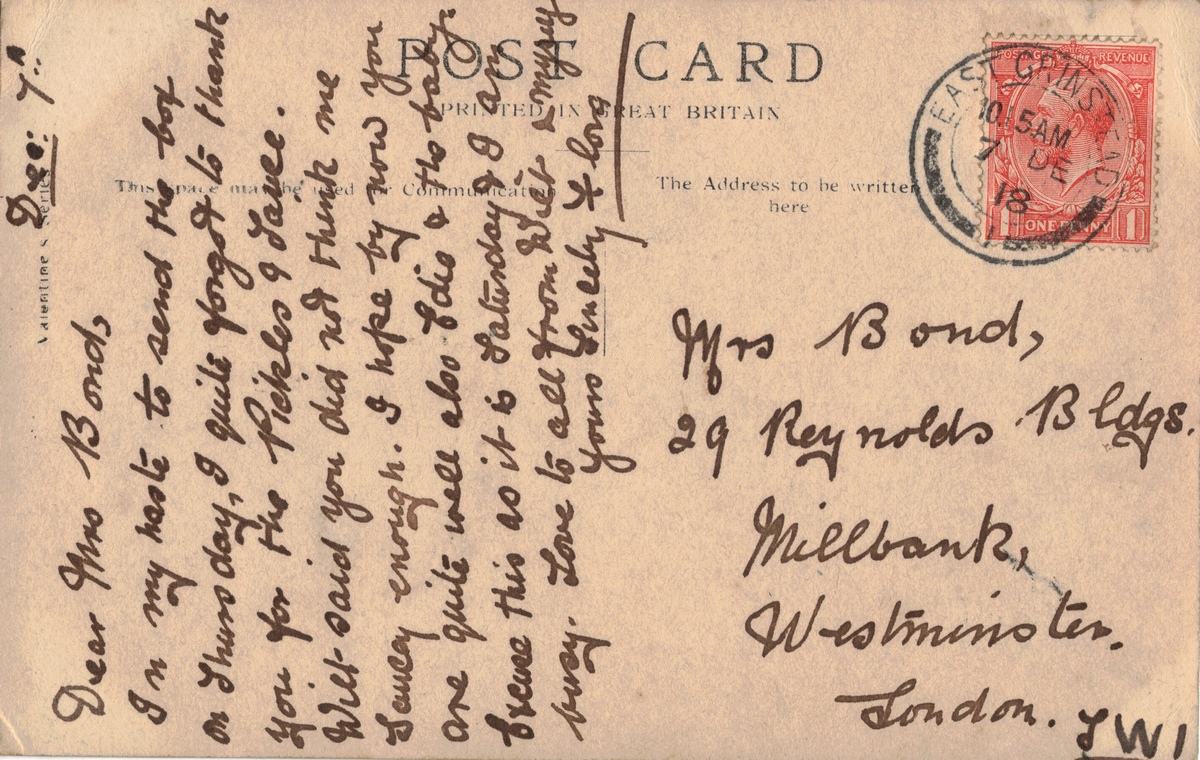 POST CARD
PRINTED IN GREAT BRITAIN
This space may be used for Communication
The Address to be written
here
Valentine's Series
POSTAGE REVENUE
ONE PENNY
1 1
EAST GRINSTEAD
10.15AM
7 DE
18
Dec: 7th
Dear Mrs Bond,
In my haste to send the box
on Thursday, I quite forgot to thank
you for the Pickles & Sauce.
Wilt said you did not think me
Saucy enough. I hope by now you
are quite well also Edie & the baby.
Excuse this as it is Saturday & I am
busy. Love to all from Wilt & myself
Yours Sincely F Long
Mrs Bond,
29 Reynolds Bldgs.
Millbank,
Westminster.
London. SW1